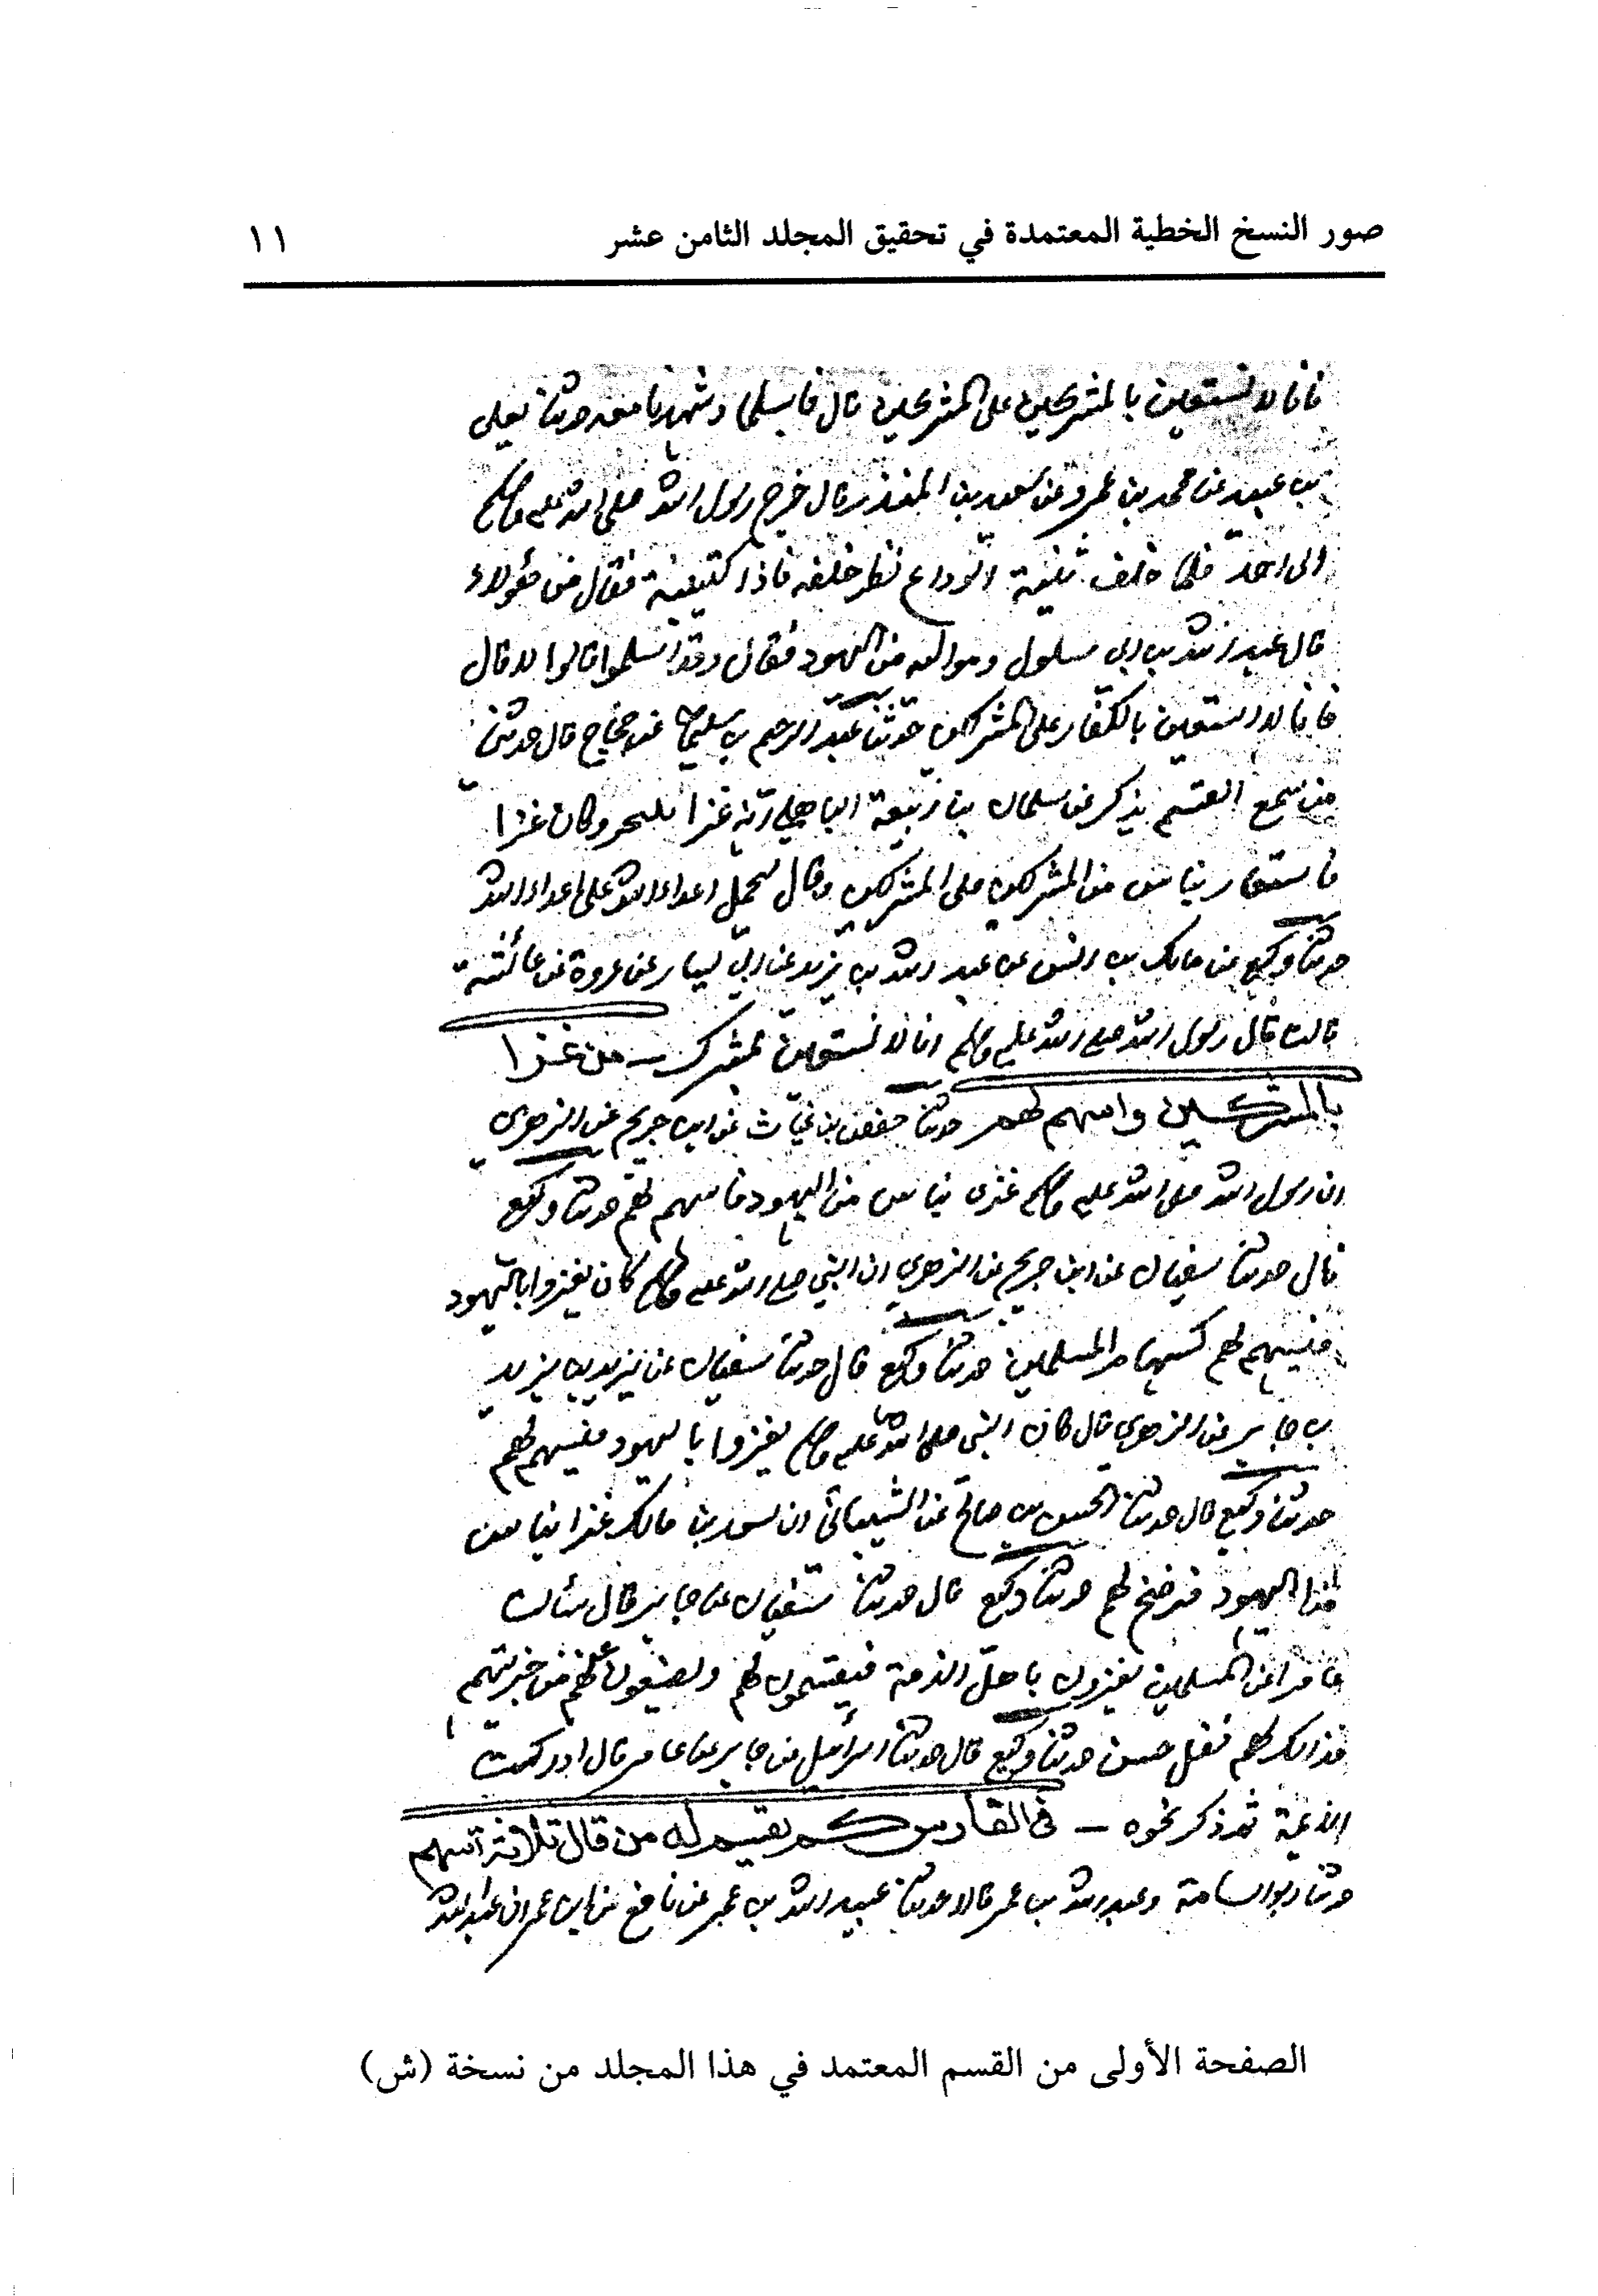 صور النسخ الخطية المعتمدة في تحقيق المجلد الثامن عشر
١١
فانا لا نستعين بالمشركين على المشركين قال فاسلما وشهدنا معه حدثنا يعلى
بن عبيد عن محمد بن عمرو عن سعد بن المنذر قال خرج رسول الله صلى الله عليه وسلم
الى احد فلما خلف ثنية الوداع نظر خلفه فاذا كتيبة فقال من هؤلاء
قال عبد الله بن ابي سلول ومواليه من اليهود فقال وقد اسلموا قالوا لا قال
فانا لا نستعين بالكفار على المشركين حدثنا عبد الرحيم بن سليمان عن حجاج قال حدثني
من سمع القسم يذكر عن سلمان بن ربيعة الباهلي انه غزا بلنجر وكان غزا
فاستعار بناس من المشركين على المشركين وقال لنحمل اعداء الله على اعداء الله
حدثنا وكيع عن مالك بن انس عن عبد الله بن يزيد عن ابي نيار عن عروة عن عائشة
قالت قال رسول الله صلى الله عليه وسلم انا لا نستعين بمشرك – من غزا
بالمشركين واسهم لهم حدثنا حفص بن غياث عن ابن جريج عن الزهري
ان رسول الله صلى الله عليه وسلم غزى بناس من اليهود فاسهم لهم حدثنا وكيع
قال حدثنا سفيان عن ابن جريج عن الزهري ان النبي صلى الله عليه وسلم كان يغزوا باليهود
فيسهم لهم كسهام المسلمين حدثنا وكيع قال حدثنا سفيان عن يزيد بن يزيد
بن جابر عن الزهري قال كان النبي صلى الله عليه وسلم يغزوا باليهود فيسهم لهم
حدثنا وكيع قال حدثنا الحسن بن صالح عن الشيباني ان سعد بن مالك غزا بناس
من اليهود فرضخ لهم حدثنا وكيع قال حدثنا سفيان عن جابر قال سألت
عامرا عن المسلمين يغزون باهل الذمة فيقسمون لهم ويضعون عنهم من جزيتهم
فذالك لهم نفل حسن حدثنا وكيع قال حدثنا اسرائيل عن جابر عن عامر قال ادركت
الائمة ثم ذكر نحوه – في الفارس كم يقسم له من قال ثلاثة اسهم
حدثنا ابو اسامة وعبد الله بن عمر قالا حدثنا عبيد الله بن عمر عن نافع عن ابن عمر ان
الصفحة الأولى من القسم المعتمد في هذا المجلد من نسخة (ش)